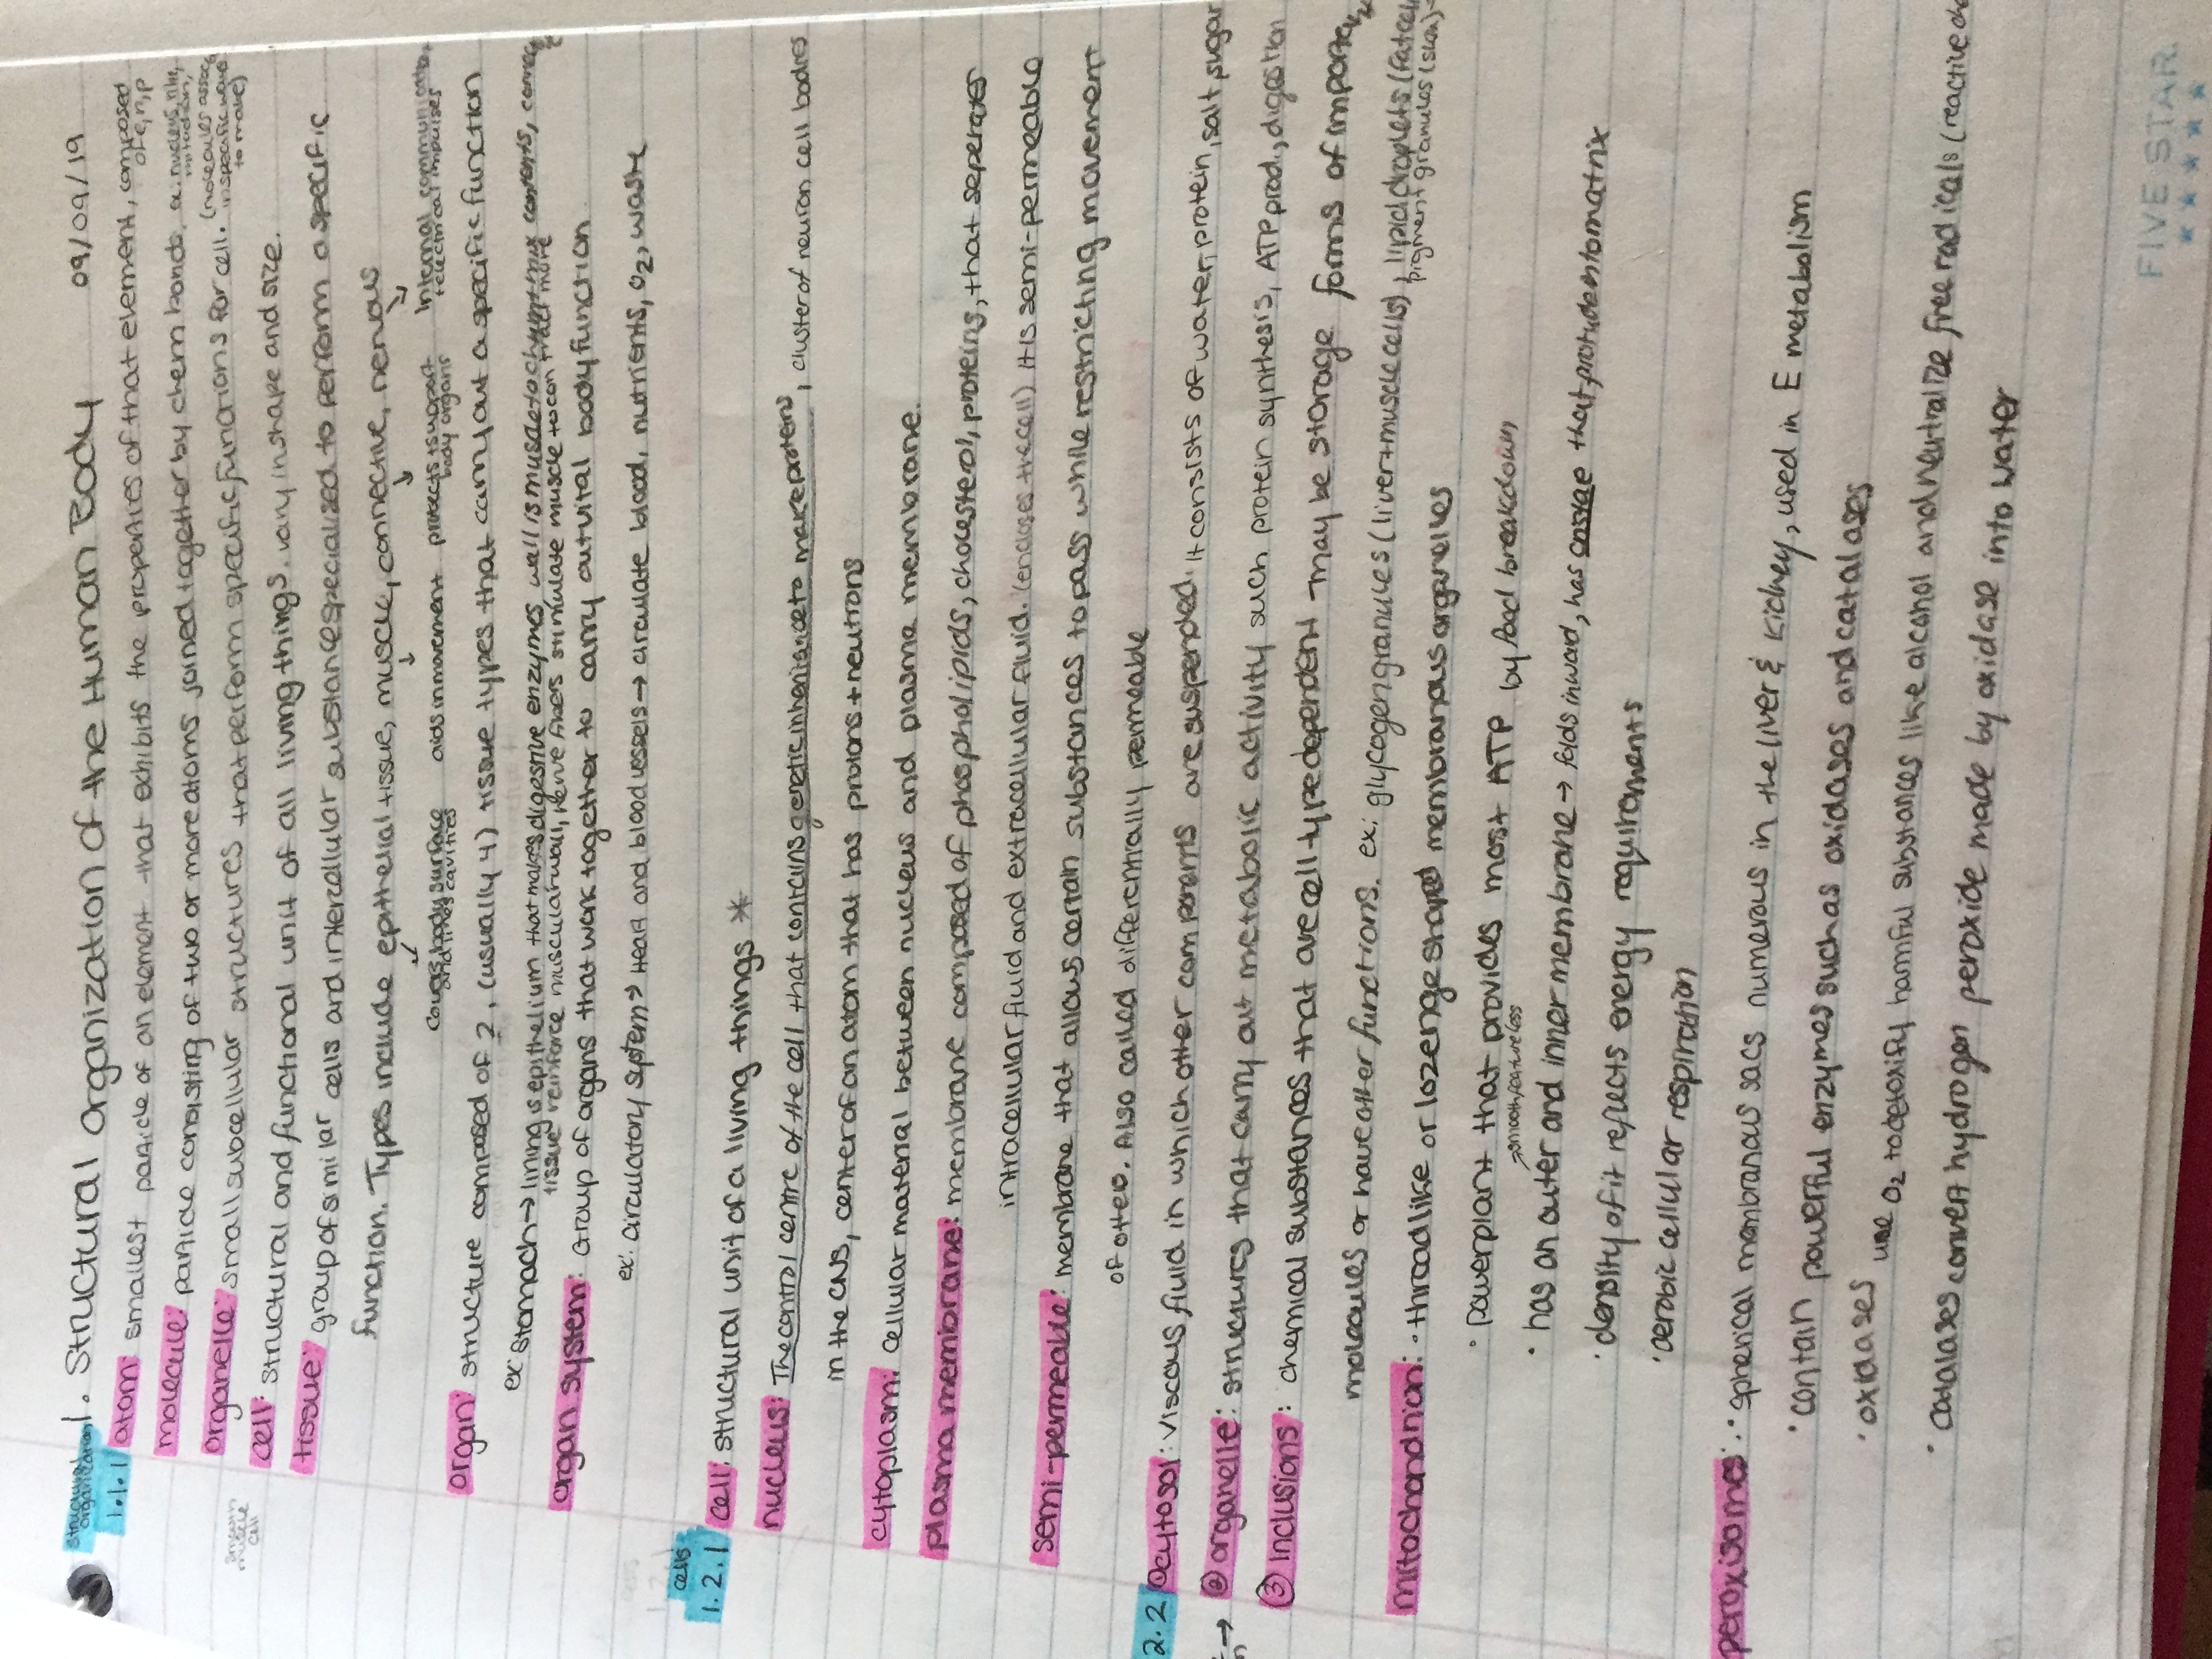 1. Structural Organization of the Human Body 09/09/19
structural organization
1.1.1 atom: smallest particle of an element that exhibits the properties of that element, composed of e, n, p
molecule: particle consisting of two or more atoms joined together by chem bonds.
organelle: small subcellular structures that perform specific functions for cell. (molecules assoc in specific ways to make)
cell: structural and functional unit of all living things. vary in shape and size.
smooth muscle cell
tissue: group of similar cells and intercellular substances specialized to perform a specific
function. Types include epithelial tissue, muscle, connective, nervous
covers body surface and lines cavities
aids in movement
protects + support body organs
internal communication electrical impulses
organ: structure composed of 2, (usually 4) tissue types that carry out a specific function
ex: stomach → lining is epithelium that makes digestive enzymes, wall is muscle to churn + mix contents, connec
tissue reinforce muscular wall, nerve fibers stimulate muscle to contract more
organ system: group of organs that work together to carry out vital body function
ex: circulatory system → heart and blood vessels → circulate blood, nutrients, O2, waste
cells
1.2.1 cell: structural unit of a living things *
nucleus: The control centre of the cell that contains genetic inheritance to make proteins, cluster of neuron cell bodies
in the CNS, center of an atom that has protons + neutrons
cytoplasm: cellular material between nucleus and plasma membrane.
plasma membrane: membrane composed of phospholipids, cholesterol, proteins, that seperates
intracellular fluid and extracellular fluid. (encloses the cell) It is semi-permeable
semi-permeable: membrane that allows certain substances to pass while restricting movement
of others. Also called differentially permeable
2.2 ① cytosol: viscous fluid in which other components are suspended. It consists of water, protein, salt, sugar
→ ② organelle: structures that carry out metabolic activity such protein synthesis, ATP prod., digestion
③ Inclusions: chemical substances that are cell type dependent may be storage forms of important
molecules or have other functions. ex: glycogen granules (liver + muscle cells), lipid droplets (fat cell
pigment granules (skin)
mitochondrion: · threadlike or lozenge shaped membranous organelles
· powerplant that provides most ATP by food breakdown
→ smooth, featureless
· has an outer and inner membrane → folds inward, has cristae that protrudes into matrix
· density of it reflects energy requirements
· aerobic cellular respiration
peroxisomes: · spherical membranous sacs numerous in the liver & kidney, used in E metabolism
· contain powerful enzymes such as oxidases and catalases
· oxidases use O2 to detoxify harmful substances like alcohol and neutralize free radicals (reactive che
· catalases convert hydrogen peroxide made by oxidase into water
FIVE STAR.